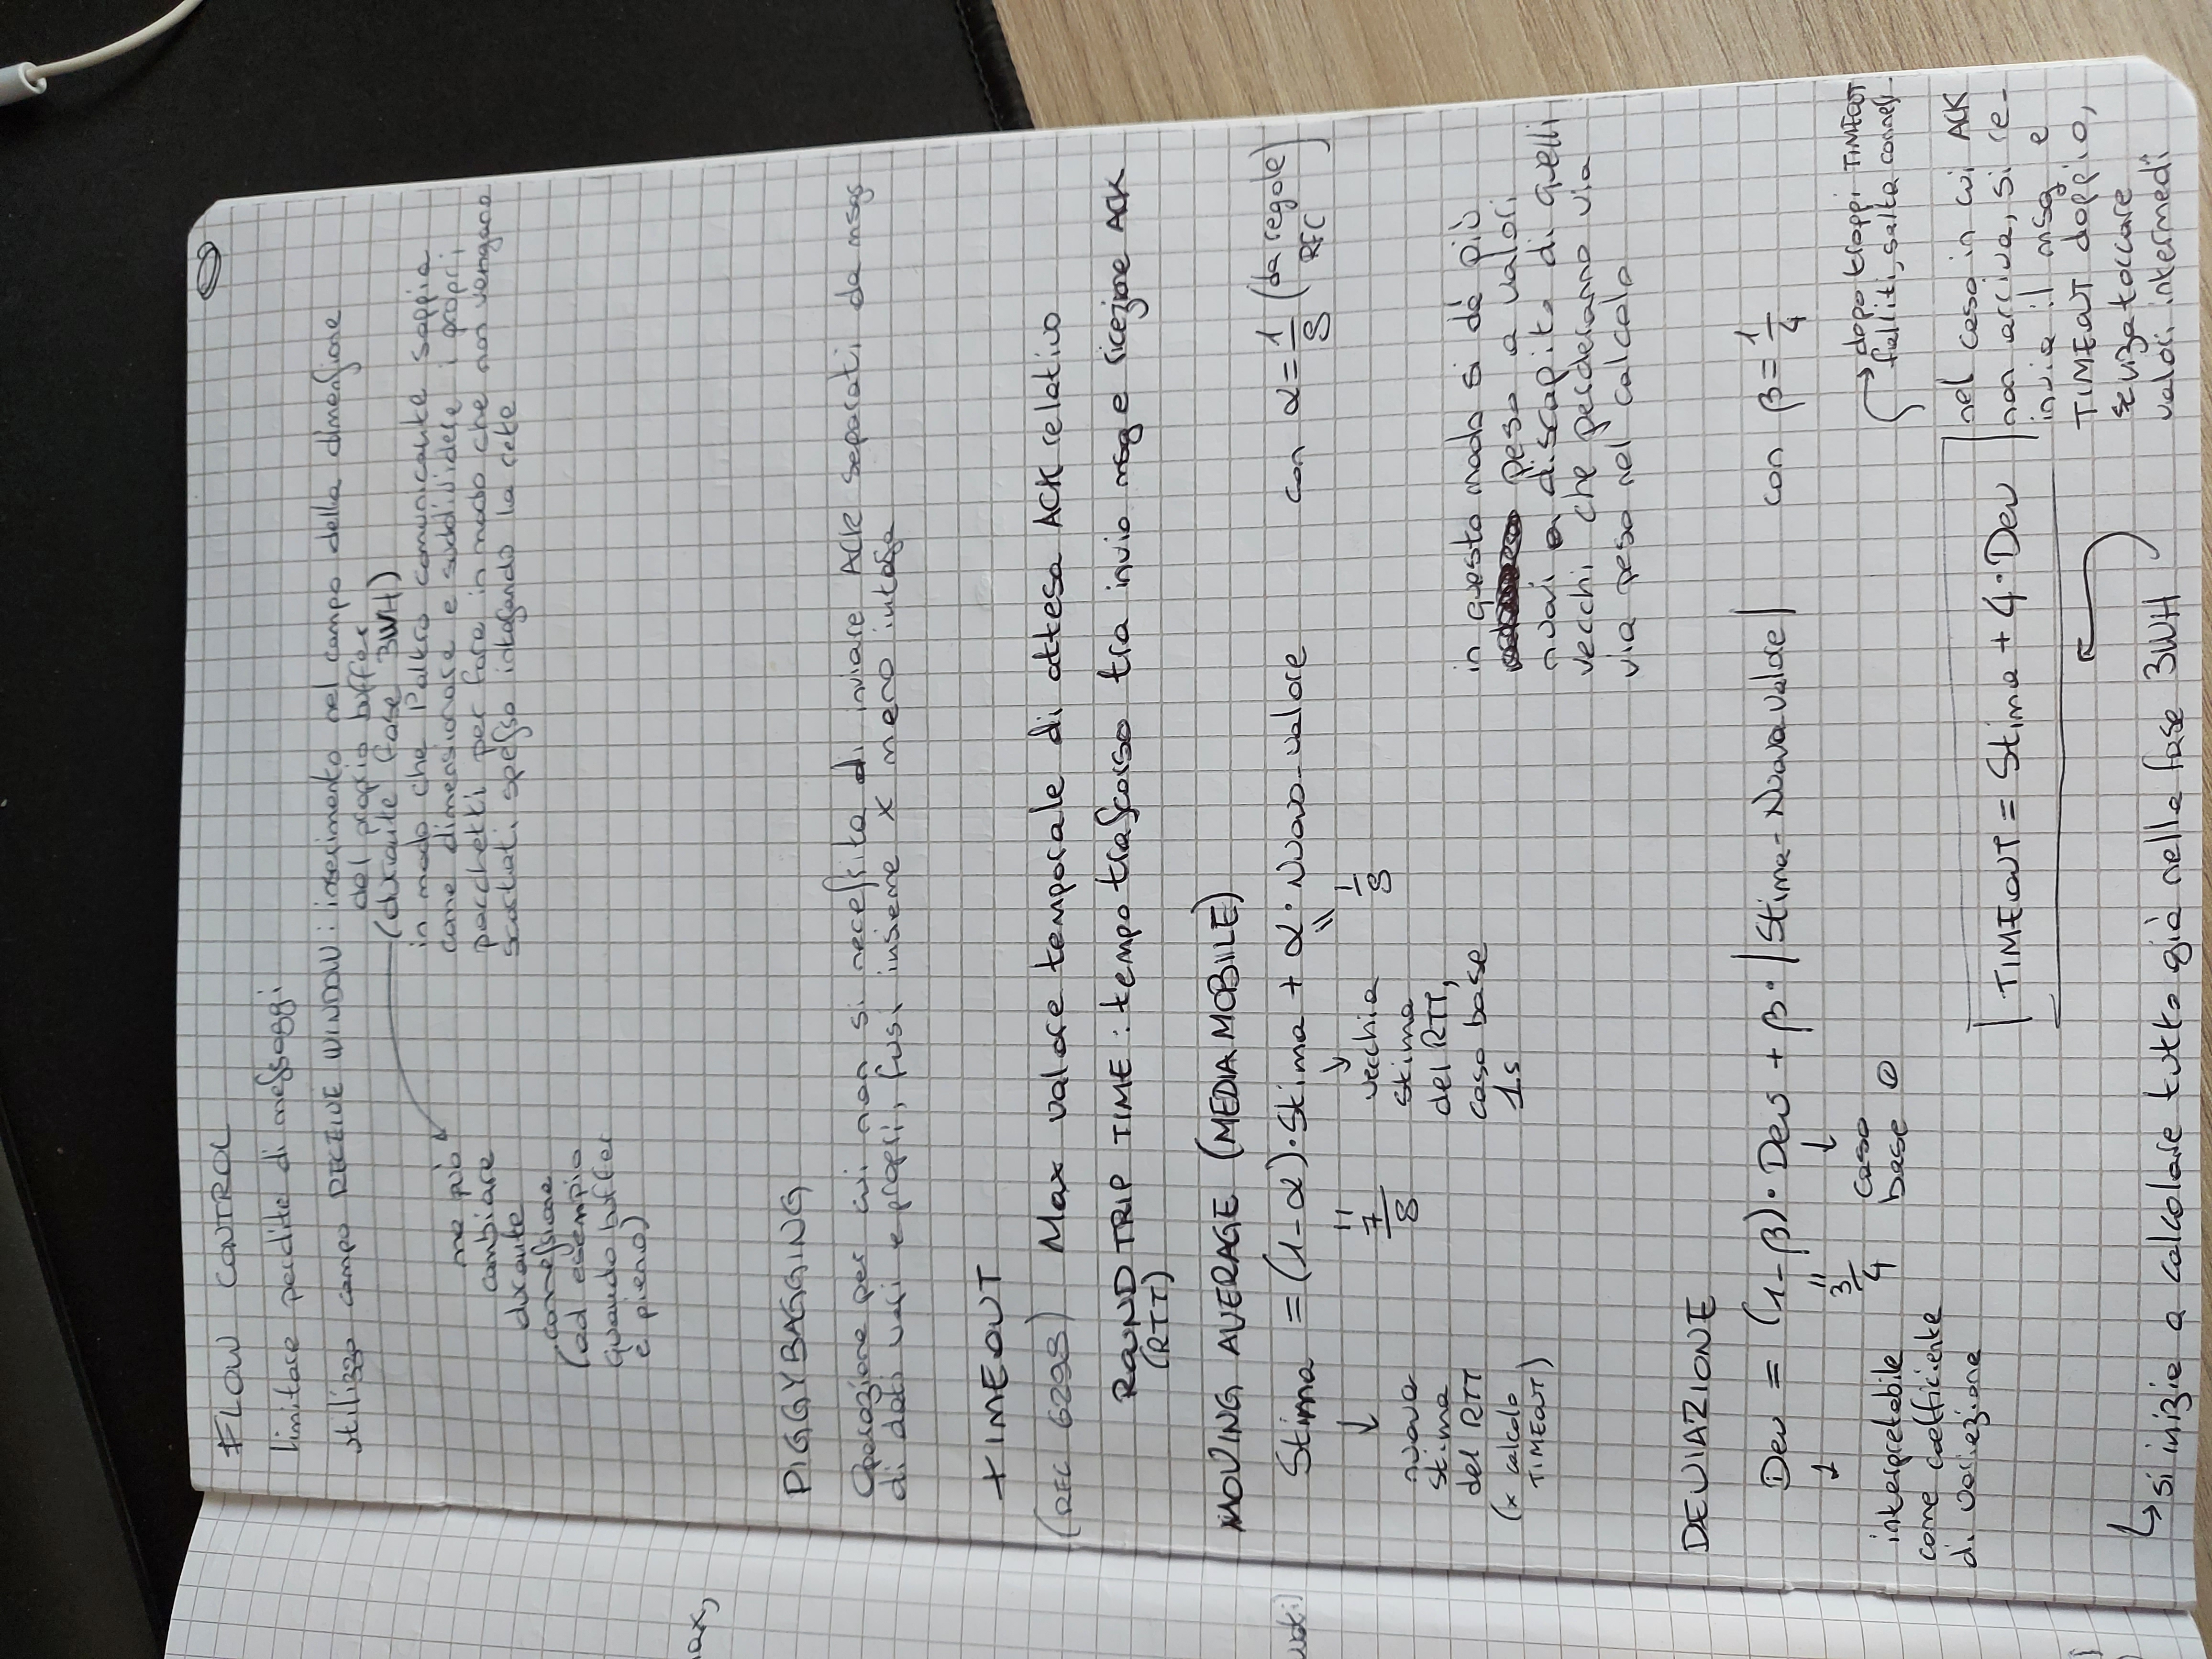 FLOW CONTROL
limitare perdite di messaggi
utilizzo campo RECEIVE WINDOW : inserimento nel campo della dimensione
del proprio buffer
(durante fase 3WH)
in modo che l'altro comunicante sappia
come dimensionare e suddividere i propri
pacchetti per fare in modo che non vengano
scartati spesso intasando la rete
ma può
cambiare
durante
connessione
(ad esempio
quando buffer
è pieno)
ax,
PIGGYBAGGING
Operazione per cui non si necessita di inviare ACK separati da msgs
di dati veri e propri, fusi insieme x meno intasa
TIMEOUT
(RFC 6298) Max valore temporale di attesa ACK relativo
ROUND TRIP TIME : tempo trascorso tra invio msg e ricezione ACK
(RTT)
MOVING AVERAGE (MEDIA MOBILE)
Stima = (1-α)·Stima + α·Nuovo-valore con α = 1/8 (da regole RFC)
↓ " ↓ "
7/8 1/8
nuova
stima
del RTT
(x calcolo
TIMEOUT)
vecchia
stima
del RTT,
caso base
1s
in questo modo si dà più
peso a valori
nuovi a discapito di quelli
vecchi che perderanno via
via peso nel calcolo
DEVIAZIONE
Dev = (1-β)·Dev + β·|Stima-Nuovo-valore| con β = 1/4
↓ " ↓
3/4
caso
base 0
interpretabile
come coefficiente
di variazione
→ dopo troppi TIMEOUT
falliti, salta conness.
TIMEOUT = Stima + 4·Dev
nel caso in cui ACK
non arriva, si re-
invia il msg e
TIMEOUT doppio,
senza toccare
valori intermedi
↳ si inizia a calcolare tutto già nella fase 3WH